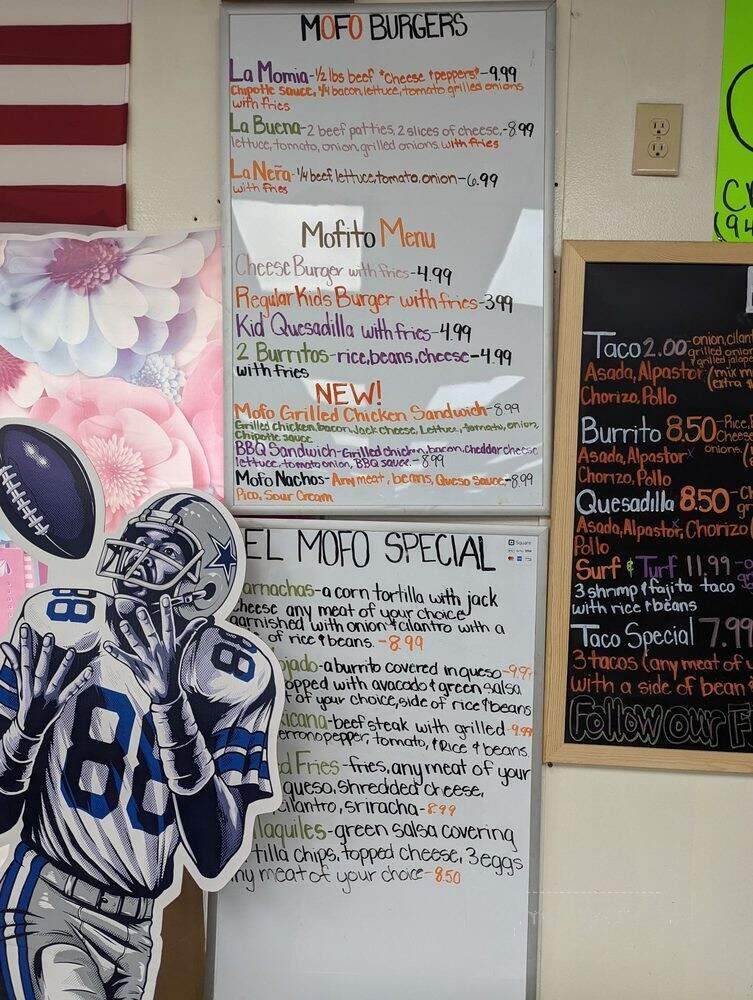 MOFO BURGERS
La Momia-1/2 lbs beef *Cheese & peppers*-9.99
Chipotle sauce, 1/4 bacon, lettuce, tomato grilled onions
with fries
La Buena-2 beef patties, 2 slices of cheese,-8.99
lettuce, tomato, onion, grilled onions with fries
La Nera-1/4 beef, lettuce, tomato, onion-6.99
with fries
Mofito Menu
Cheese Burger with fries-4.99
Regular Kids Burger with fries-3.99
Kid Quesadilla with fries-4.99
2 Burritos-rice, beans, cheese-4.99
with fries
NEW!
Mofo Grilled Chicken Sandwich-8.99
Grilled chicken, bacon, Jack cheese, Lettuce, tomato, onion,
Chipotle sauce
BBQ Sandwich-Grilled chicken, bacon, Cheddar cheese
lettuce, tomato onion, BBQ sauce.-8.99
Mofo Nachos-Any meat, beans, Queso sauce-8.99
Pico, Sour Cream
EL MOFO SPECIAL
Square
arnachas-a corn tortilla with jack
cheese any meat of your choice
garnished with onion & cilantro with a
of rice & beans.-8.99
ojado-a burrito covered in queso-9.99
opped with avacado & green salsa
of your choice, side of rice & beans
xicana-beef steak with grilled-9.99
errono pepper, tomato, & Rice & beans
d Fries-fries, any meat of your
queso, shredded cheese,
cilantro, sriracha-8.99
laquiles-green salsa covering
tilla chips, topped cheese, 3 eggs
ny meat of your choice-8.50
88
88
88
Taco 2.00-onion, cilan
grilled onion
grilled jalape
Asada, Alpastor (mix m
extra
Chorizo, Pollo
Burrito 8.50-Rice,
Cheese
Asada, Alpastor onions.
Chorizo, Pollo
Quesadilla 8.50-Ch
gr
Asada, Alpastor, Chorizo
Pollo
Surf & Turf 11.99
3 shrimp & fajita taco
with rice & beans
Taco Special 7.99
3 tacos (any meat of
with a side of bean
Follow our F
C
(94